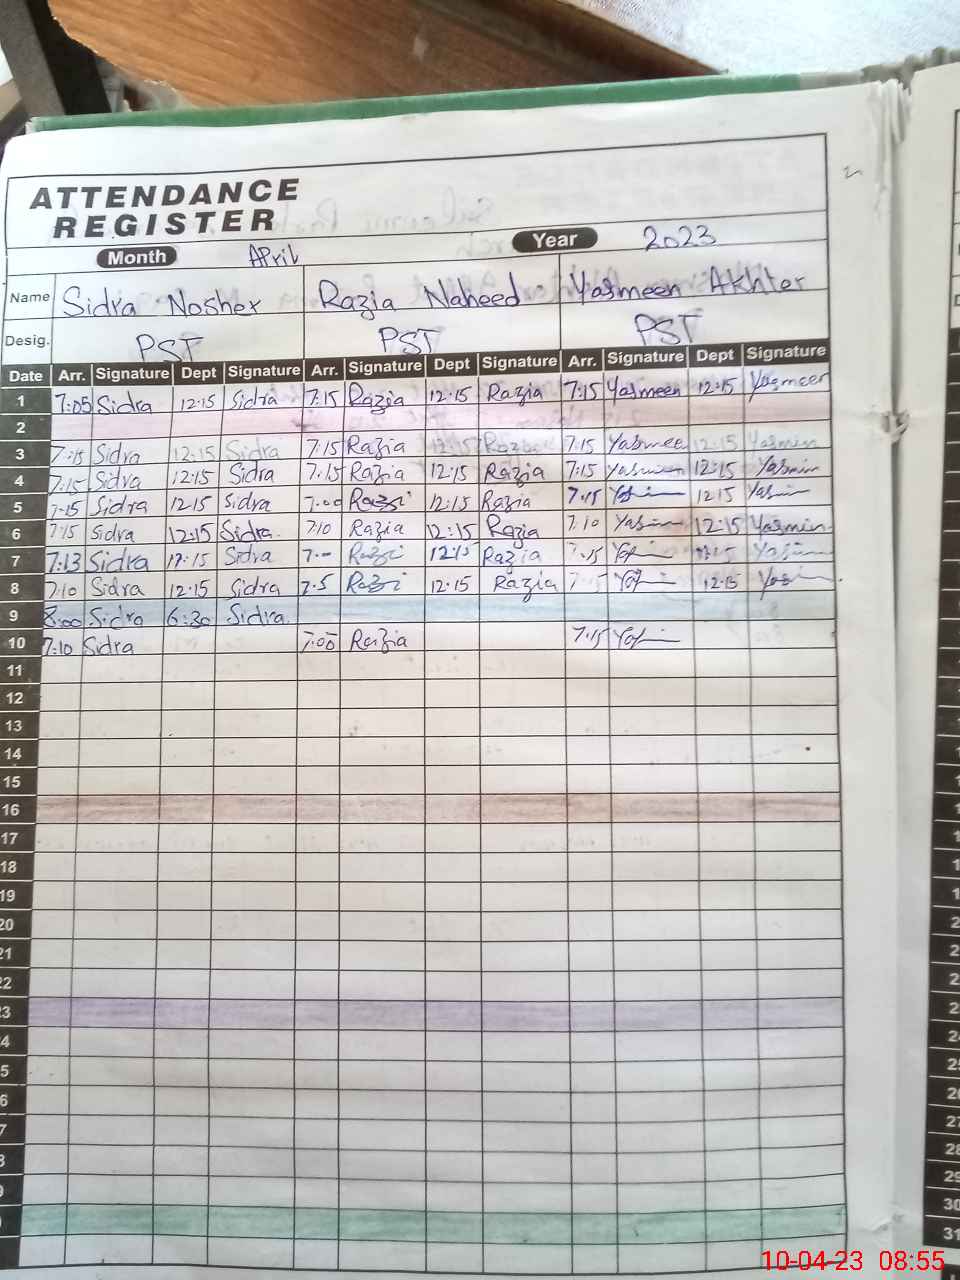 ATTENDANCE
REGISTER
Month April Year 2023
Name Sidra Nosher Razia Naheed Yasmeen Akhter
Desig. PST PST PST
Date Arr. Signature Dept Signature Arr. Signature Dept Signature Arr. Signature Dept Signature
1 7:05 Sidra 12:15 Sidra 7:15 Razia 12:15 Razia 7:15 Yasmeen 12:15 Yasmeen
2
3 7:15 Sidra 12:15 Sidra 7:15 Razia 12:15 Razia 7:15 Yasmee 12:15 Yasmin
4 7:15 Sidra 12:15 Sidra 7:15 Razia 12:15 Razia 7:15 Yasmeen 12:15 Yasmin
5 7:15 Sidra 12:15 Sidra 7:00 Razi 12:15 Razia 7:15 12:15
6 7:15 Sidra 12:15 Sidra 7:10 Razia 12:15 Razia 7:10 12:15 Yasmin
7 7:13 Sidra 12:15 Sidra Razi 12:15 Razia
8 7:10 Sidra 12:15 Sidra 7.5 Razi 12:15 Razia 12:15
9 8:00 Sidra 6:30 Sidra
10 7:10 Sidra 7:00 Razia 7:15
11
12
13
14
15
16
17
18
19
20
21
22
23
24
25
26
27
28
29
30
31
10-04-23 08:55